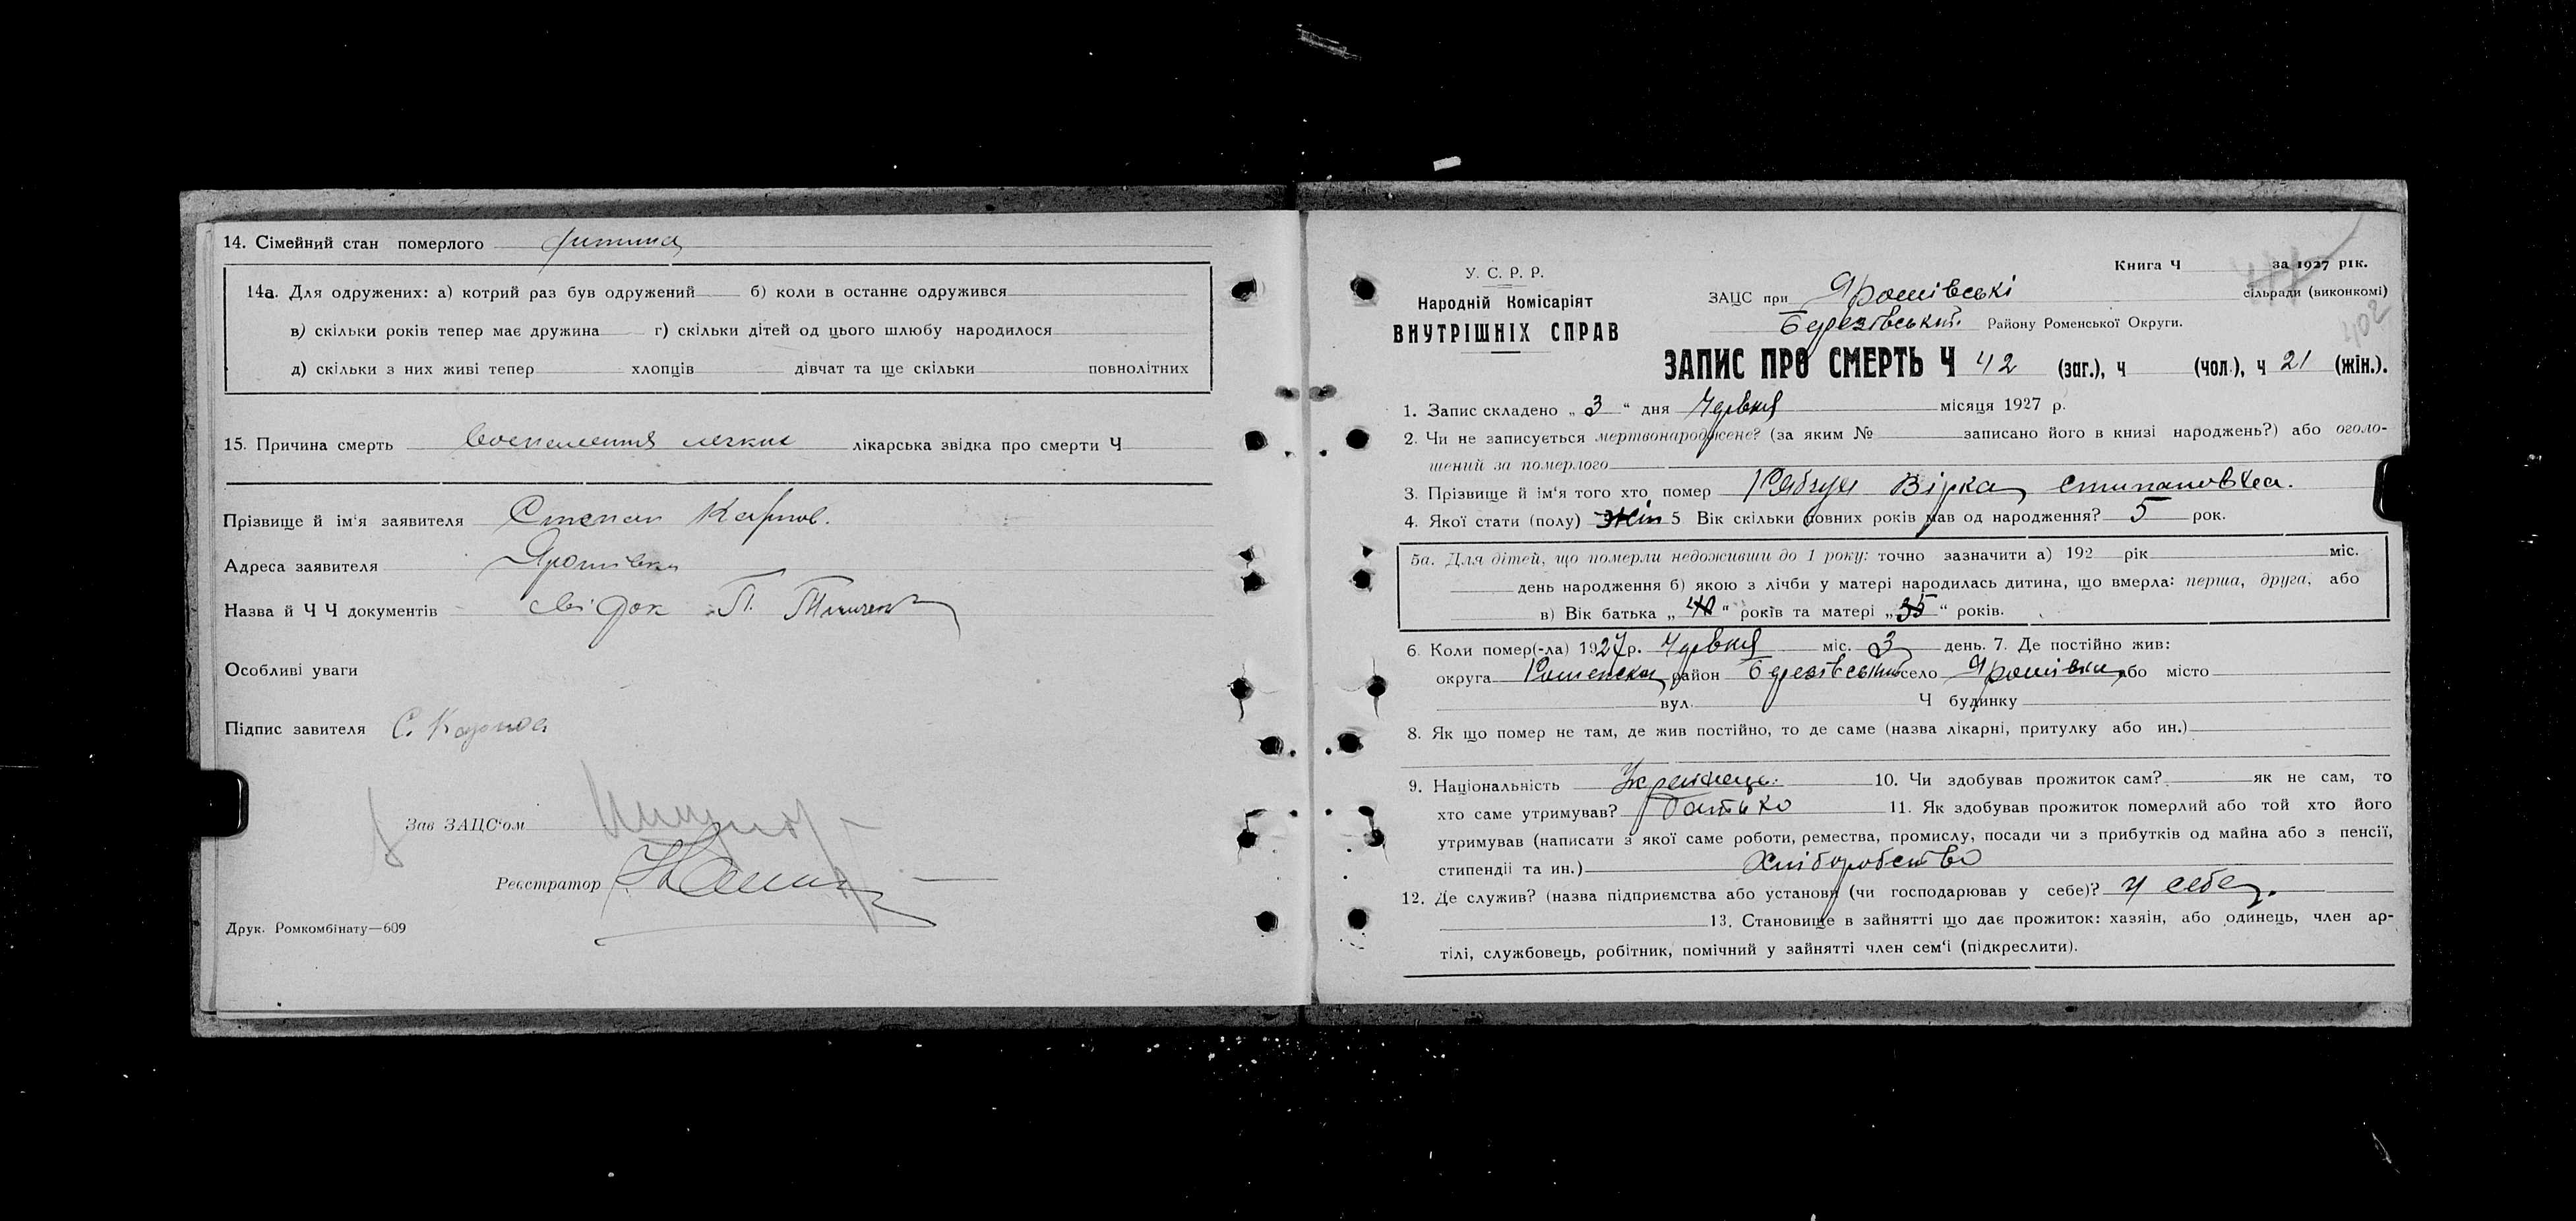 14. Сімейний стан померлого дитина
14а. Для одружених: а) котрий раз був одружений б) коли в останнє одружився
в) скільки років тепер має дружина г) скільки дітей од цього шлюбу народилося
д) скільки з них живі тепер хлопців дівчат та ще скільки повнолітних
15. Причина смерть воспаления легких лікарська звідка про смерти Ч
Прізвище й ім'я заявителя Степан Карпов.
Адреса заявителя Ярошівка
Назва й Ч Ч документів свідок П.
Особливі уваги
Підпис завителя С.
Зав ЗАЦС'ом
Реєстратор
Друк. Ромкомбінату—609
Книга Ч за 1927 рік.
У. С. Р. Р.
Народній Комісаріят
ВНУТРІШНІХ СПРАВ
ЗАЦС при Ярошівські сільради (виконкомі)
Березівський Району Роменської Округи.
402
ЗАПИС ПРО СМЕРТЬ Ч 42 (заг.), ч (чол.), ч 21 (жін.).
1. Запис складено „ 3 “ дня Червня місяця 1927 р.
2. Чи не записується мертвонароджене? (за яким № записано його в книзі народжень?) або оголо-
шений за померлого
3. Прізвище й ім'я того хто помер Рябзун Вірка Стипановна.
4. Якої стати (полу) жін 5 Вік скільки повних років мав од народження? 5 рок.
5а. Для дітей, що померли недоживши до 1 року: точно зазначити а) 192 рік міс.
день народження б) якою з лічби у матері народилась дитина, що вмерла: перша, друга, або
в) Вік батька „ 40 “ років та матері „ 35 “ років.
6. Коли помер(-ла) 1927 р. Червня міс. 3 день. 7. Де постійно жив:
округа Роменска район Березівський село Ярошівка або місто
вул. Ч будинку
8. Як що помер не там, де жив постійно, то де саме (назва лікарні, притулку або ин.)
9. Національність Українець. 10. Чи здобував прожиток сам? як не сам, то
хто саме утримував? батько 11. Як здобував прожиток померлий або той хто його
утримував (написати з якої саме роботи, ремества, промислу, посади чи з прибутків од майна або з пенсії,
стипендії та ин.) Хліборобство
12. Де служив? (назва підприємства або установи (чи господарював у себе)? у себе.
13. Становище в зайнятті що дає прожиток: хазяін, або одинець, член ар-
тілі, службовець, робітник, помічний у зайнятті член сем'ї (підкреслити).